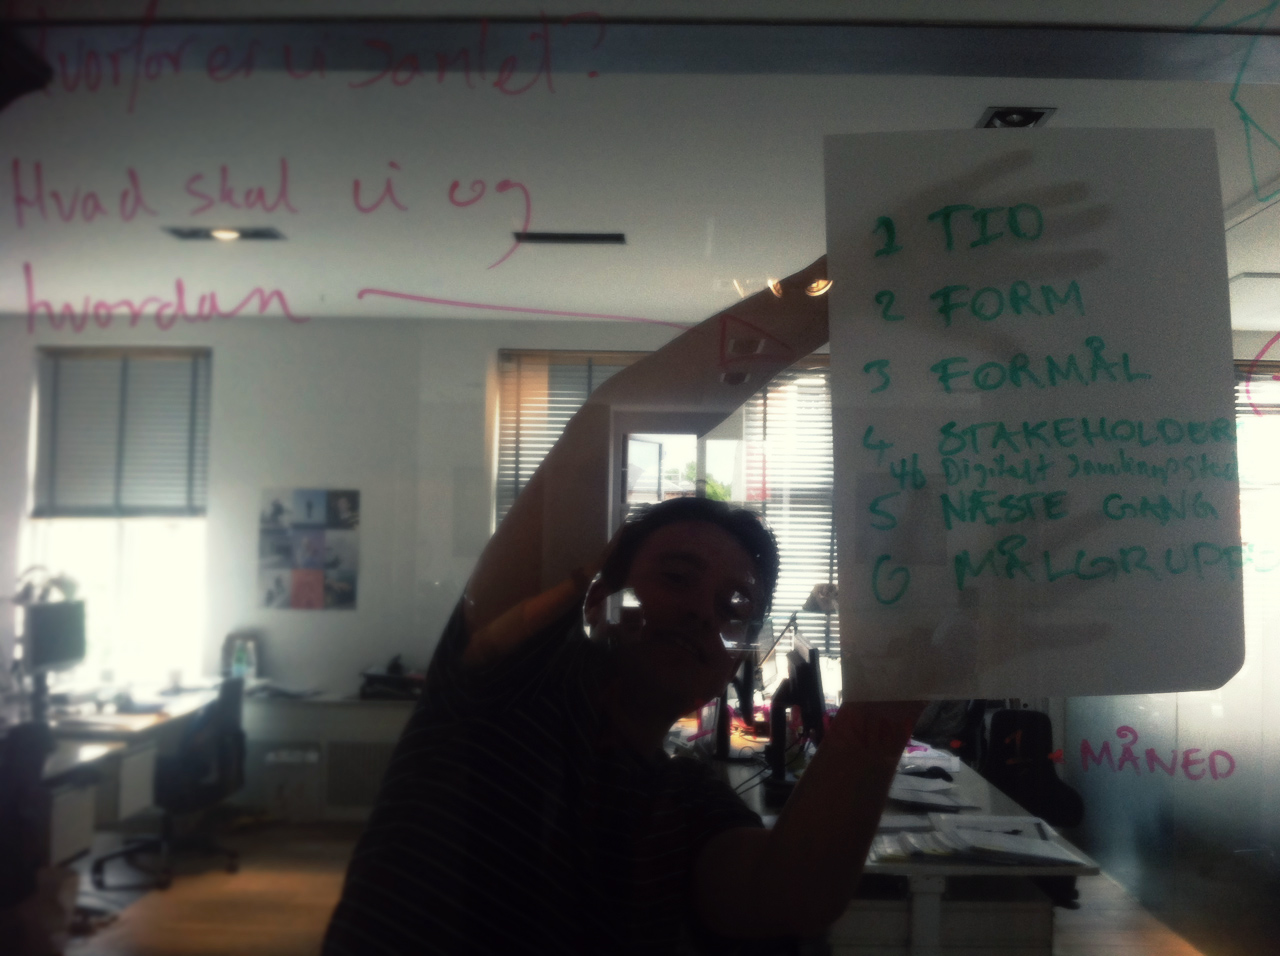 Hvorfor er vi samlet?
Hvad skal vi og
hvordan
1 TID
2 FORM
3 FORMÅL
4 STAKEHOLDER
4b Digitalt
5 NÆSTE GANG
6 MÅLGRUPPE
MÅNED